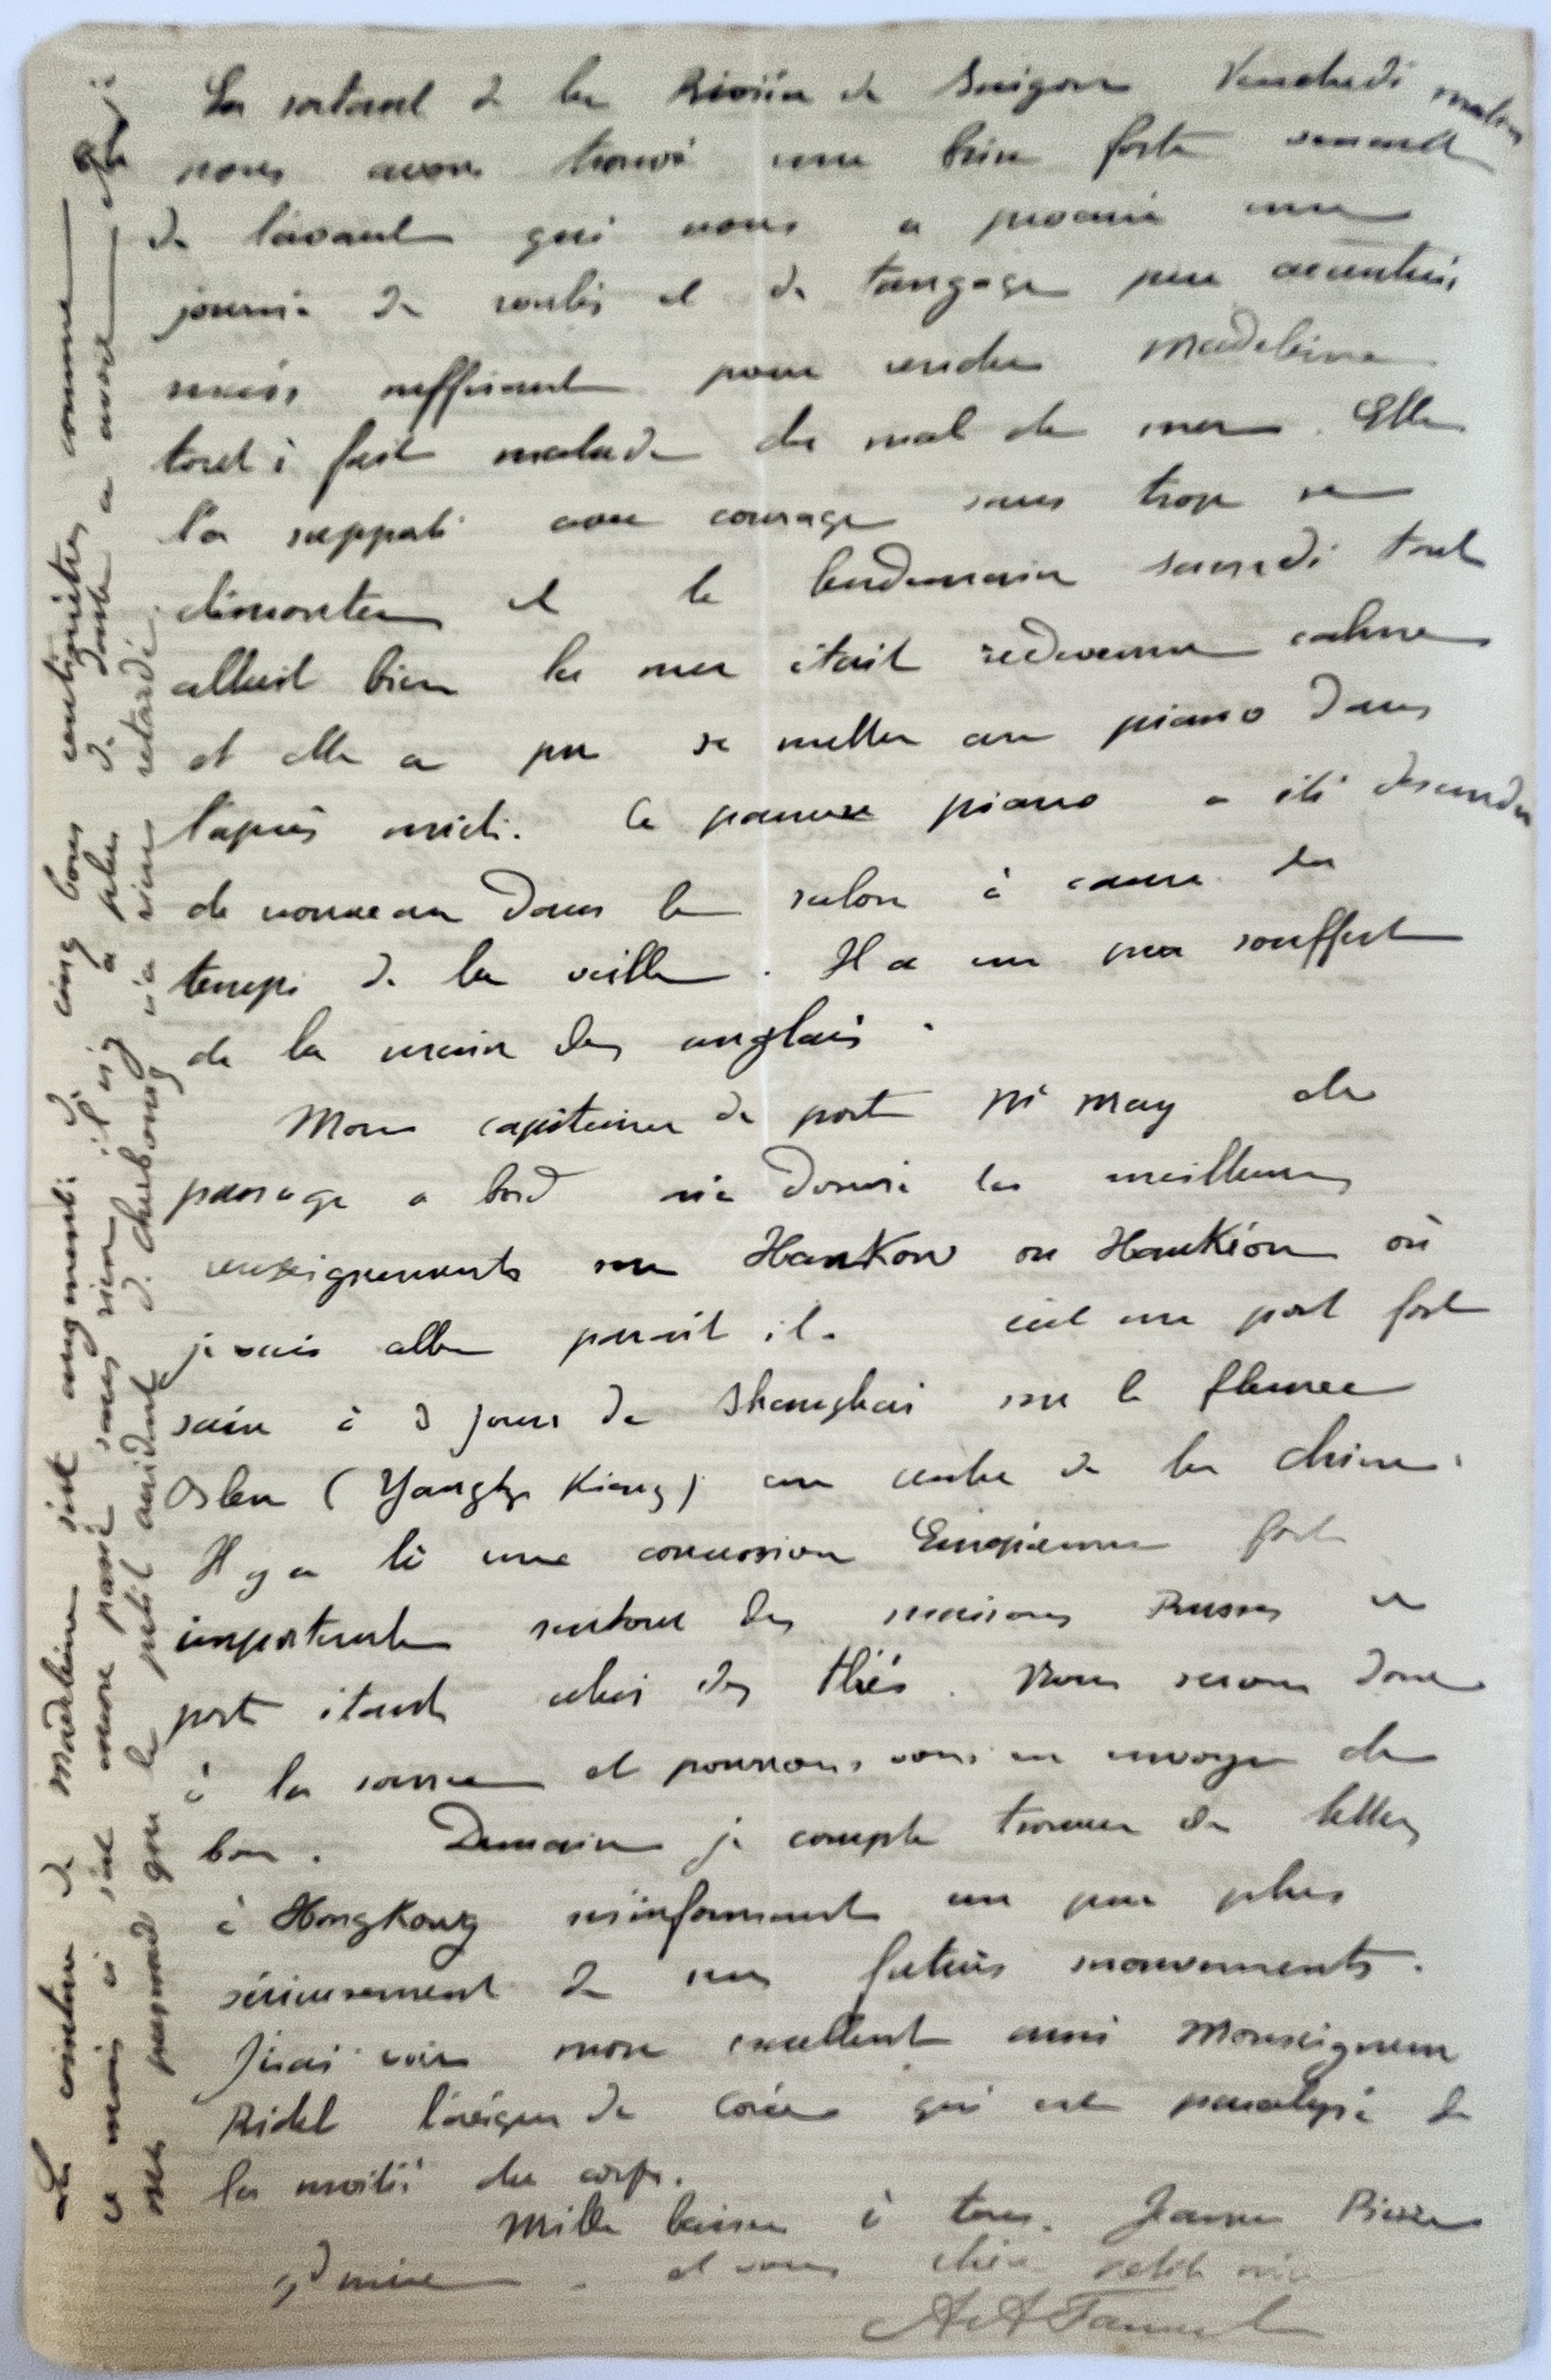 En sortant de la Rivière de Saigon Vendredi matin
nous avons trouvé une brise forte venant
de l'avant qui nous a procuré une
journée de roulis et de tangage peu accentués
mais suffisant pour rendre Madeleine
tout à fait malade du mal de mer. Elle
l'a supporté avec courage sans trop se
démonter et le lendemain samedi tout
allait bien la mer était redevenue calme
et elle a pu se mettre au piano dans
l'après midi. Ce pauvre piano a été descendu
de nouveau dans le salon à cause du
temps de la veille. Il a un peu souffert
de la main des anglais.
Mon capitaine de port Mr May de
passage a bord m'a donné les meilleurs
renseignements sur Hankow ou Hankéou où
je vais aller parait il. c'est un port fort
sain à 3 jours de Shanghai sur le fleuve
Bleu (Yangtze Kiang) au centre de la chine.
Il y a là une concession Européenne fort
importante surtout des maisons Russes ce
port étant celui des thés. Nous serons donc
à la source et pourrons vous en envoyer du
bon. Demain je compte trouver des lettres
à HongKong m'informant un peu plus
sérieusement de mes futurs mouvements.
J'irai voir mon excellent ami Monseigneur
Ridel l'évêque de Corée qui est paralysé de
la moitié du corps.
Mille baisers à tous. Jeanne Pierre
gd mère. et vous chère petite mère
La ceinture de Madeleine s'est augmentée de cinq bons centimètres comme
ce mois ci s'est encore passé sans rien il n'y a plus de doute a avoir
ne prévoit que le petit accident de cherbourg n'a rien retardé.